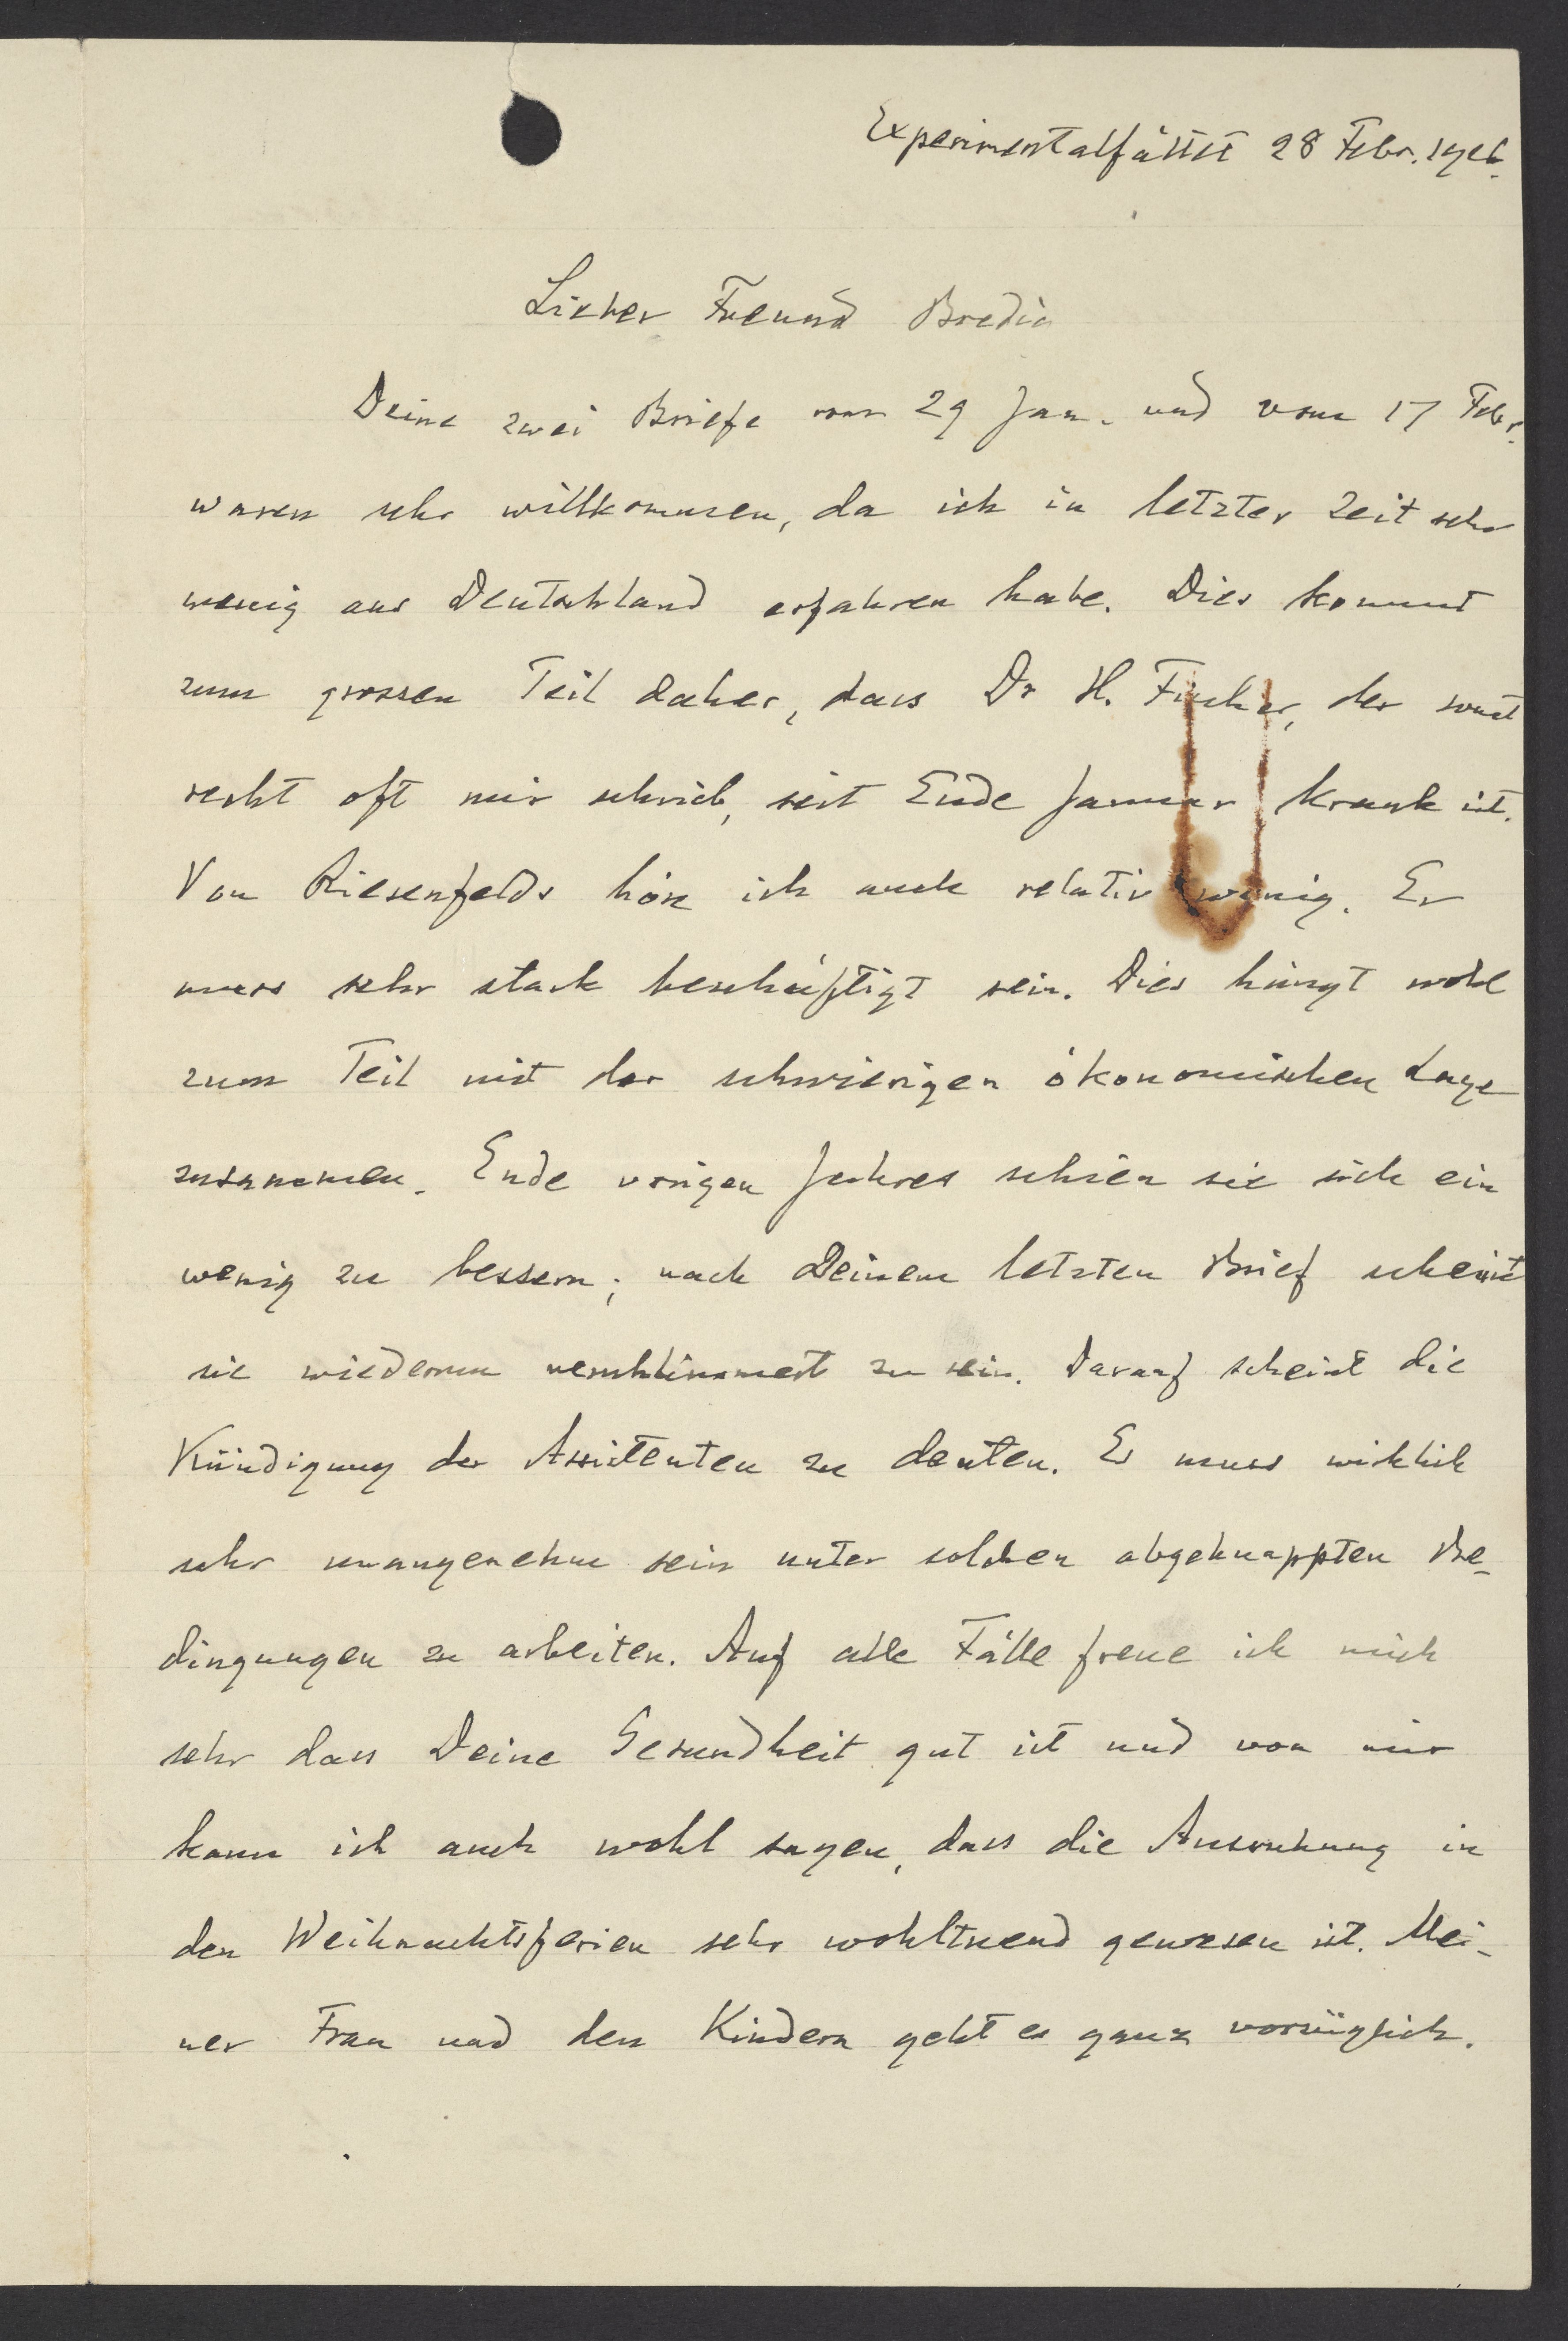 Experimentalfältet 28 Febr. 1926.
Lieber Freund Bredig
Deine zwei Briefe vom 29 Jan. und vom 17 Febr.
waren sehr willkommen, da ich in letzter Zeit sehr
wenig aus Deutschland erfahren habe. Dies kommt
zum grossen Teil daher, dass Dr H. Fischer, der sonst
recht oft mir schrieb, seit Ende Januar krank ist.
Von Riesenfelds höre ich auch relativ wenig. Er
muss sehr stark beschäftigt sein. Dies hängt wohl
zum Teil mit der schwierigen ökonomischen Lage
zusammen. Ende vorigen Jahres schien sie sich ein
wenig zu bessern; nach Deinem letzten Brief scheint
sie wiederum verschlimmert zu sein. Darauf scheint die
Kündigung der Assistenten zu deuten. Es muss wirklich
sehr unangenehm sein unter solchen abgeknappten Be-
dingungen zu arbeiten. Auf alle Fälle freue ich mich
sehr dass Deine Gesundheit gut ist und von mir
kann ich auch wohl sagen, dass die Ausruhung in
den Weihnachtsferien sehr wohltuend gewesen ist. Mei-
ner Frau und den Kindern geht es ganz vorzüglich.